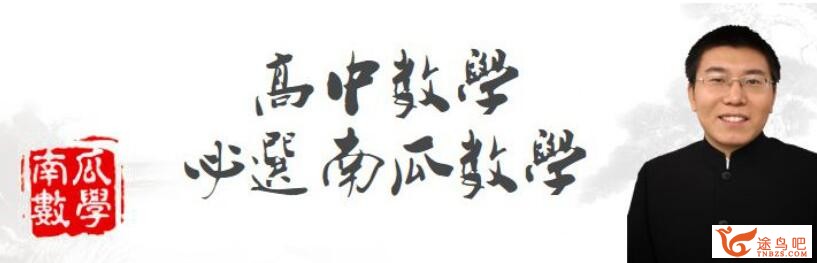 高中數學
必選南瓜數學
南瓜
數學
途鸟吧
TNBZS.COM